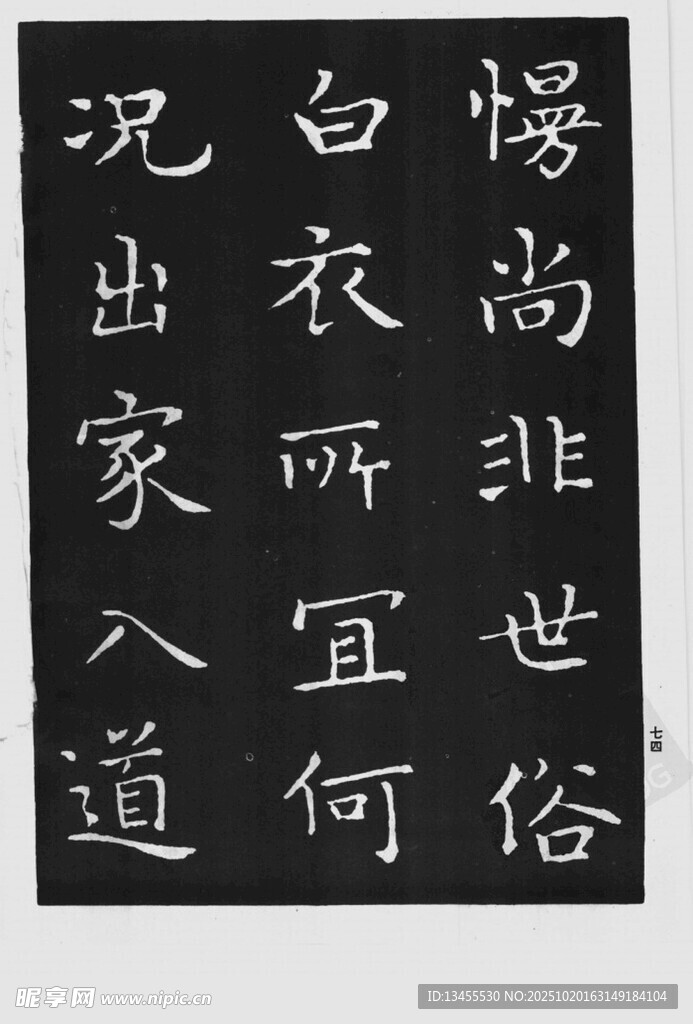 慢尚非世俗
白衣所冝何
况出家入道
七四
昵享网 www.nipic.cn
ID:13455530 NO:20251020163149184104